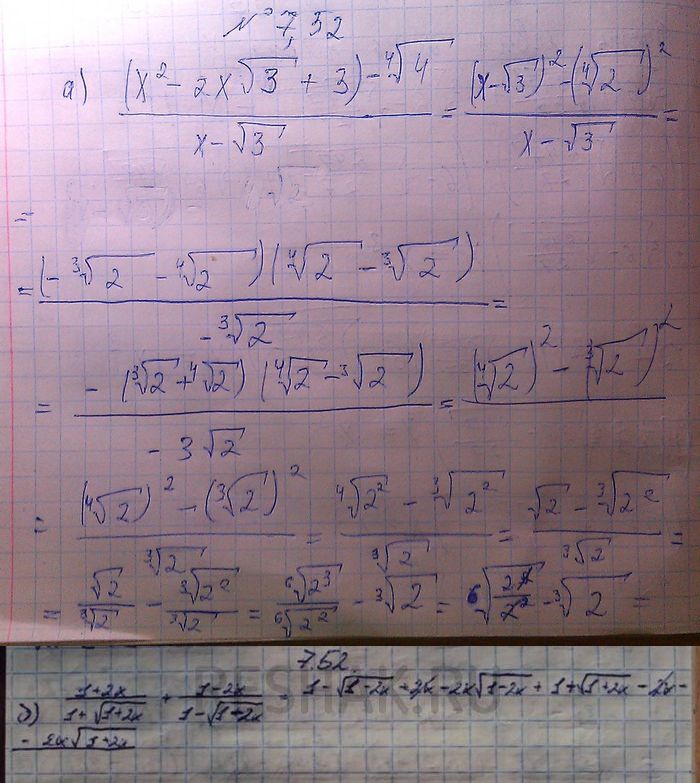 № 7,52
а) ((x² - 2x√3 + 3) - ⁴√4)/(x - √3) = ((x-√3)² - (⁴√2)²)/(x - √3) =
=
= ((-³√2 - ⁴√2)(⁴√2 - ³√2))/(-³√2) =
= (-(³√2 + ⁴√2)(⁴√2 - ³√2))/(-3√2) = ((⁴√2)² - (³√2)²)/
= ((⁴√2)² - (³√2)²)/(³√2) = (⁴√2² - ³√2²)/(³√2) = (√2 - ³√2²)/(³√2) =
= √2/³√2 - ³√2²/³√2 = ⁶√2³/⁶√2² - ³√2 = ⁶√(2³/2²) - ³√2 =
7.52.
RESHAK.RU
б) (1+2x)/(1+√(1+2x)) + (1-2x)/(1-√(1-2x)) = 1-√(1-2x) + 2x - 2x√(1-2x) + 1+√(1+2x) - 2x -
- 2x√(1+2x)